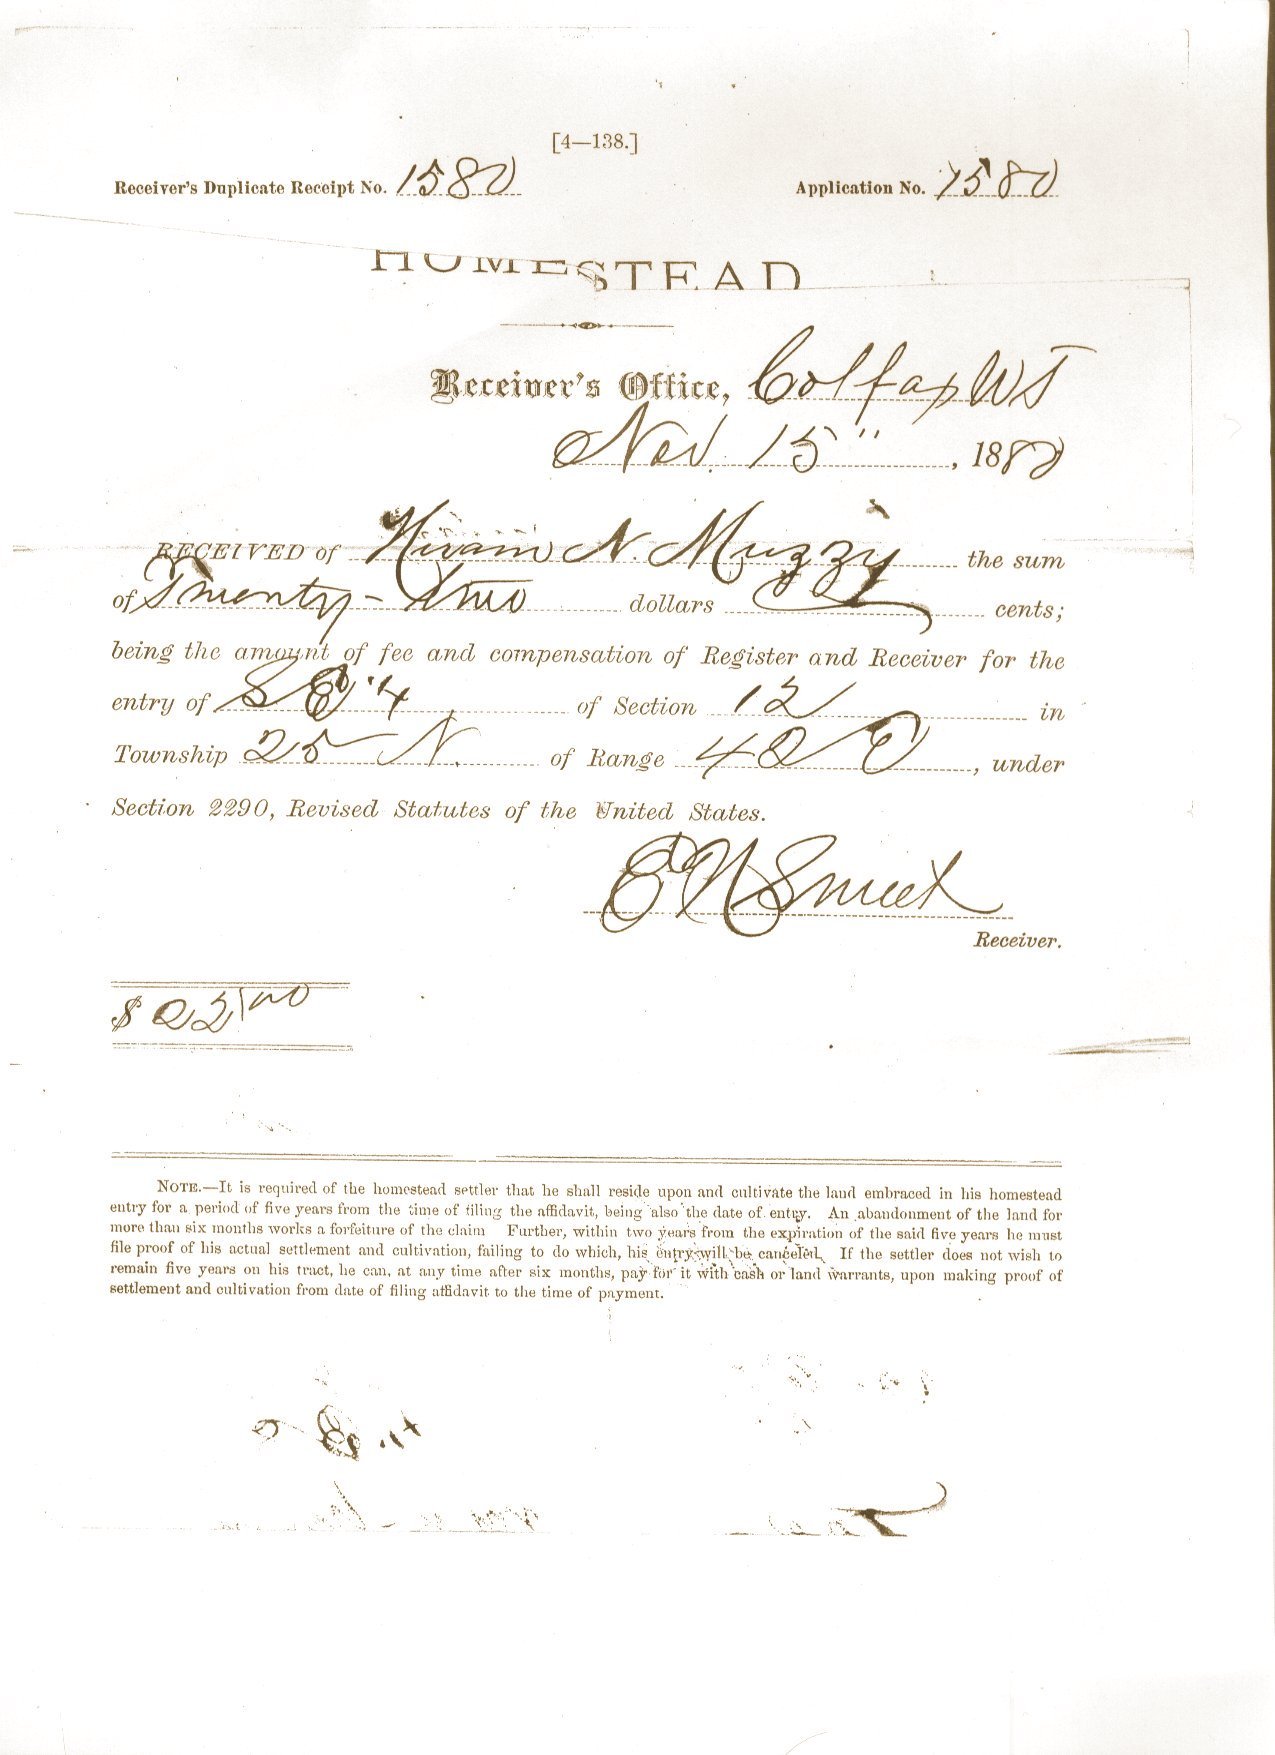 [4—138.]
Receiver's Duplicate Receipt No. 1580 Application No. 1580
HOMESTEAD
Receiver's Office, Colfax WT
Nov. 15", 1880
RECEIVED of Hiram N. Muzzy the sum
of Twenty-two dollars cents;
being the amount of fee and compensation of Register and Receiver for the
entry of SE"4 of Section 12 in
Township 25 N. of Range 42 E, under
Section 2290, Revised Statutes of the United States.
E N Sweet
Receiver.
$ 22 00
NOTE.—It is required of the homestead settler that he shall reside upon and cultivate the land embraced in his homestead
entry for a period of five years from the time of filing the affidavit, being also the date of entry. An abandonment of the land for
more than six months works a forfeiture of the claim Further, within two years from the expiration of the said five years he must
file proof of his actual settlement and cultivation, failing to do which, his entry will be canceled. If the settler does not wish to
remain five years on his tract, he can, at any time after six months, pay for it with cash or land warrants, upon making proof of
settlement and cultivation from date of filing affidavit to the time of payment.